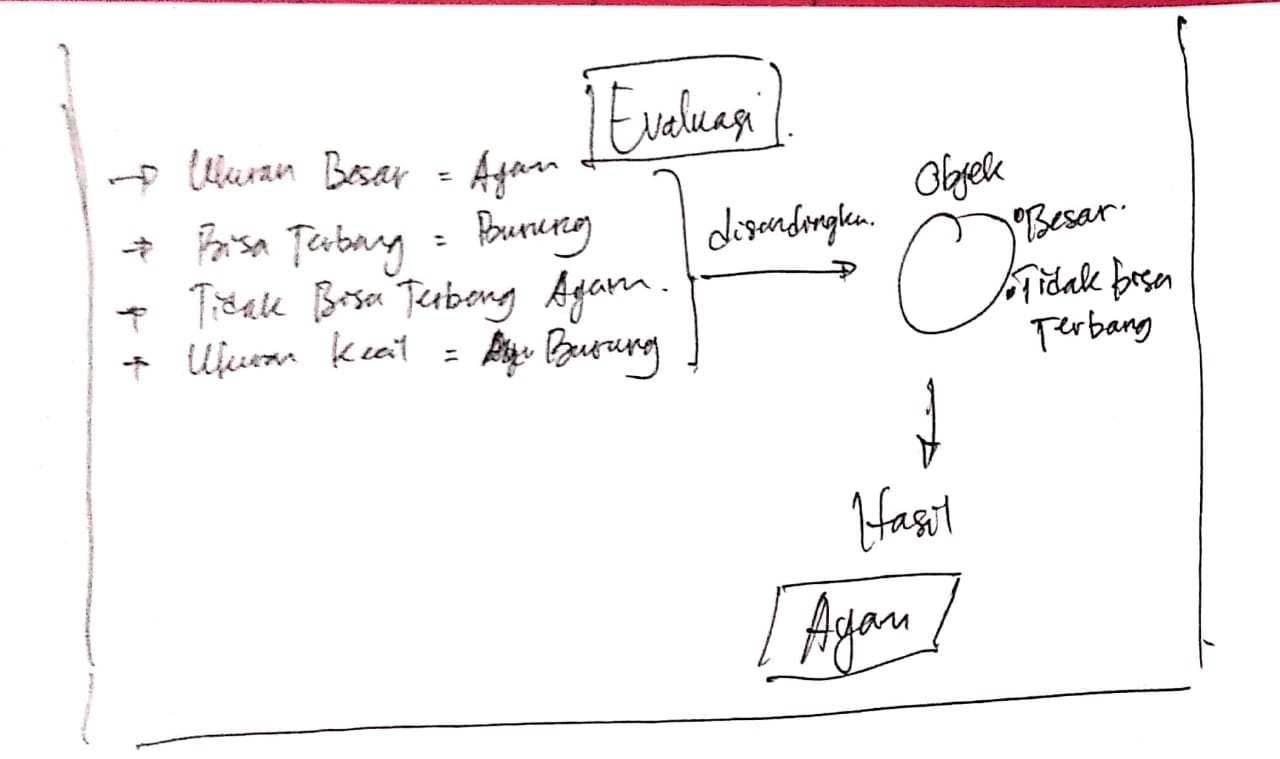 Evaluasi
→ Ukuran Besar = Ayam
→ Bisa Terbang = Burung
→ Tidak Bisa Terbang Ayam.
→ Ukuran Kecil = Burung
disandingkn.
Objek
Besar.
Tidak bisa
Terbang
Hasil
Ayam